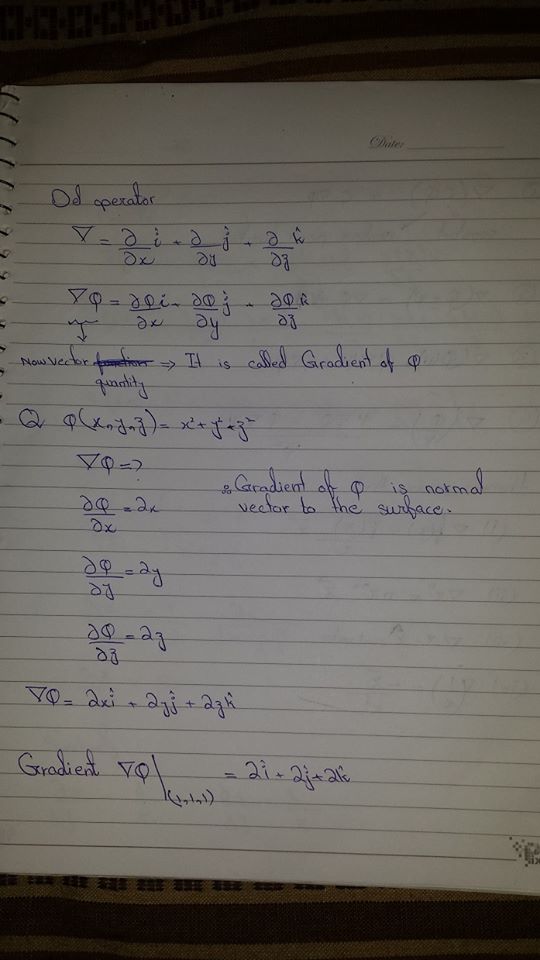 Date:
Del operator
∇ = ∂/∂x î + ∂/∂y ĵ + ∂/∂z k̂
∇φ = ∂φ/∂x î + ∂φ/∂y ĵ + ∂φ/∂z k̂
Now vector quantity ⇒ It is called Gradient of φ
Q φ(x,y,z) = x² + y² + z²
∇φ =>
∂φ/∂x = 2x
∴ Gradient of φ is normal
vector to the surface.
∂φ/∂y = 2y
∂φ/∂z = 2z
∇φ = 2xî + 2yĵ + 2zk̂
Gradient ∇φ|(1,1,1) = 2î + 2ĵ + 2k̂